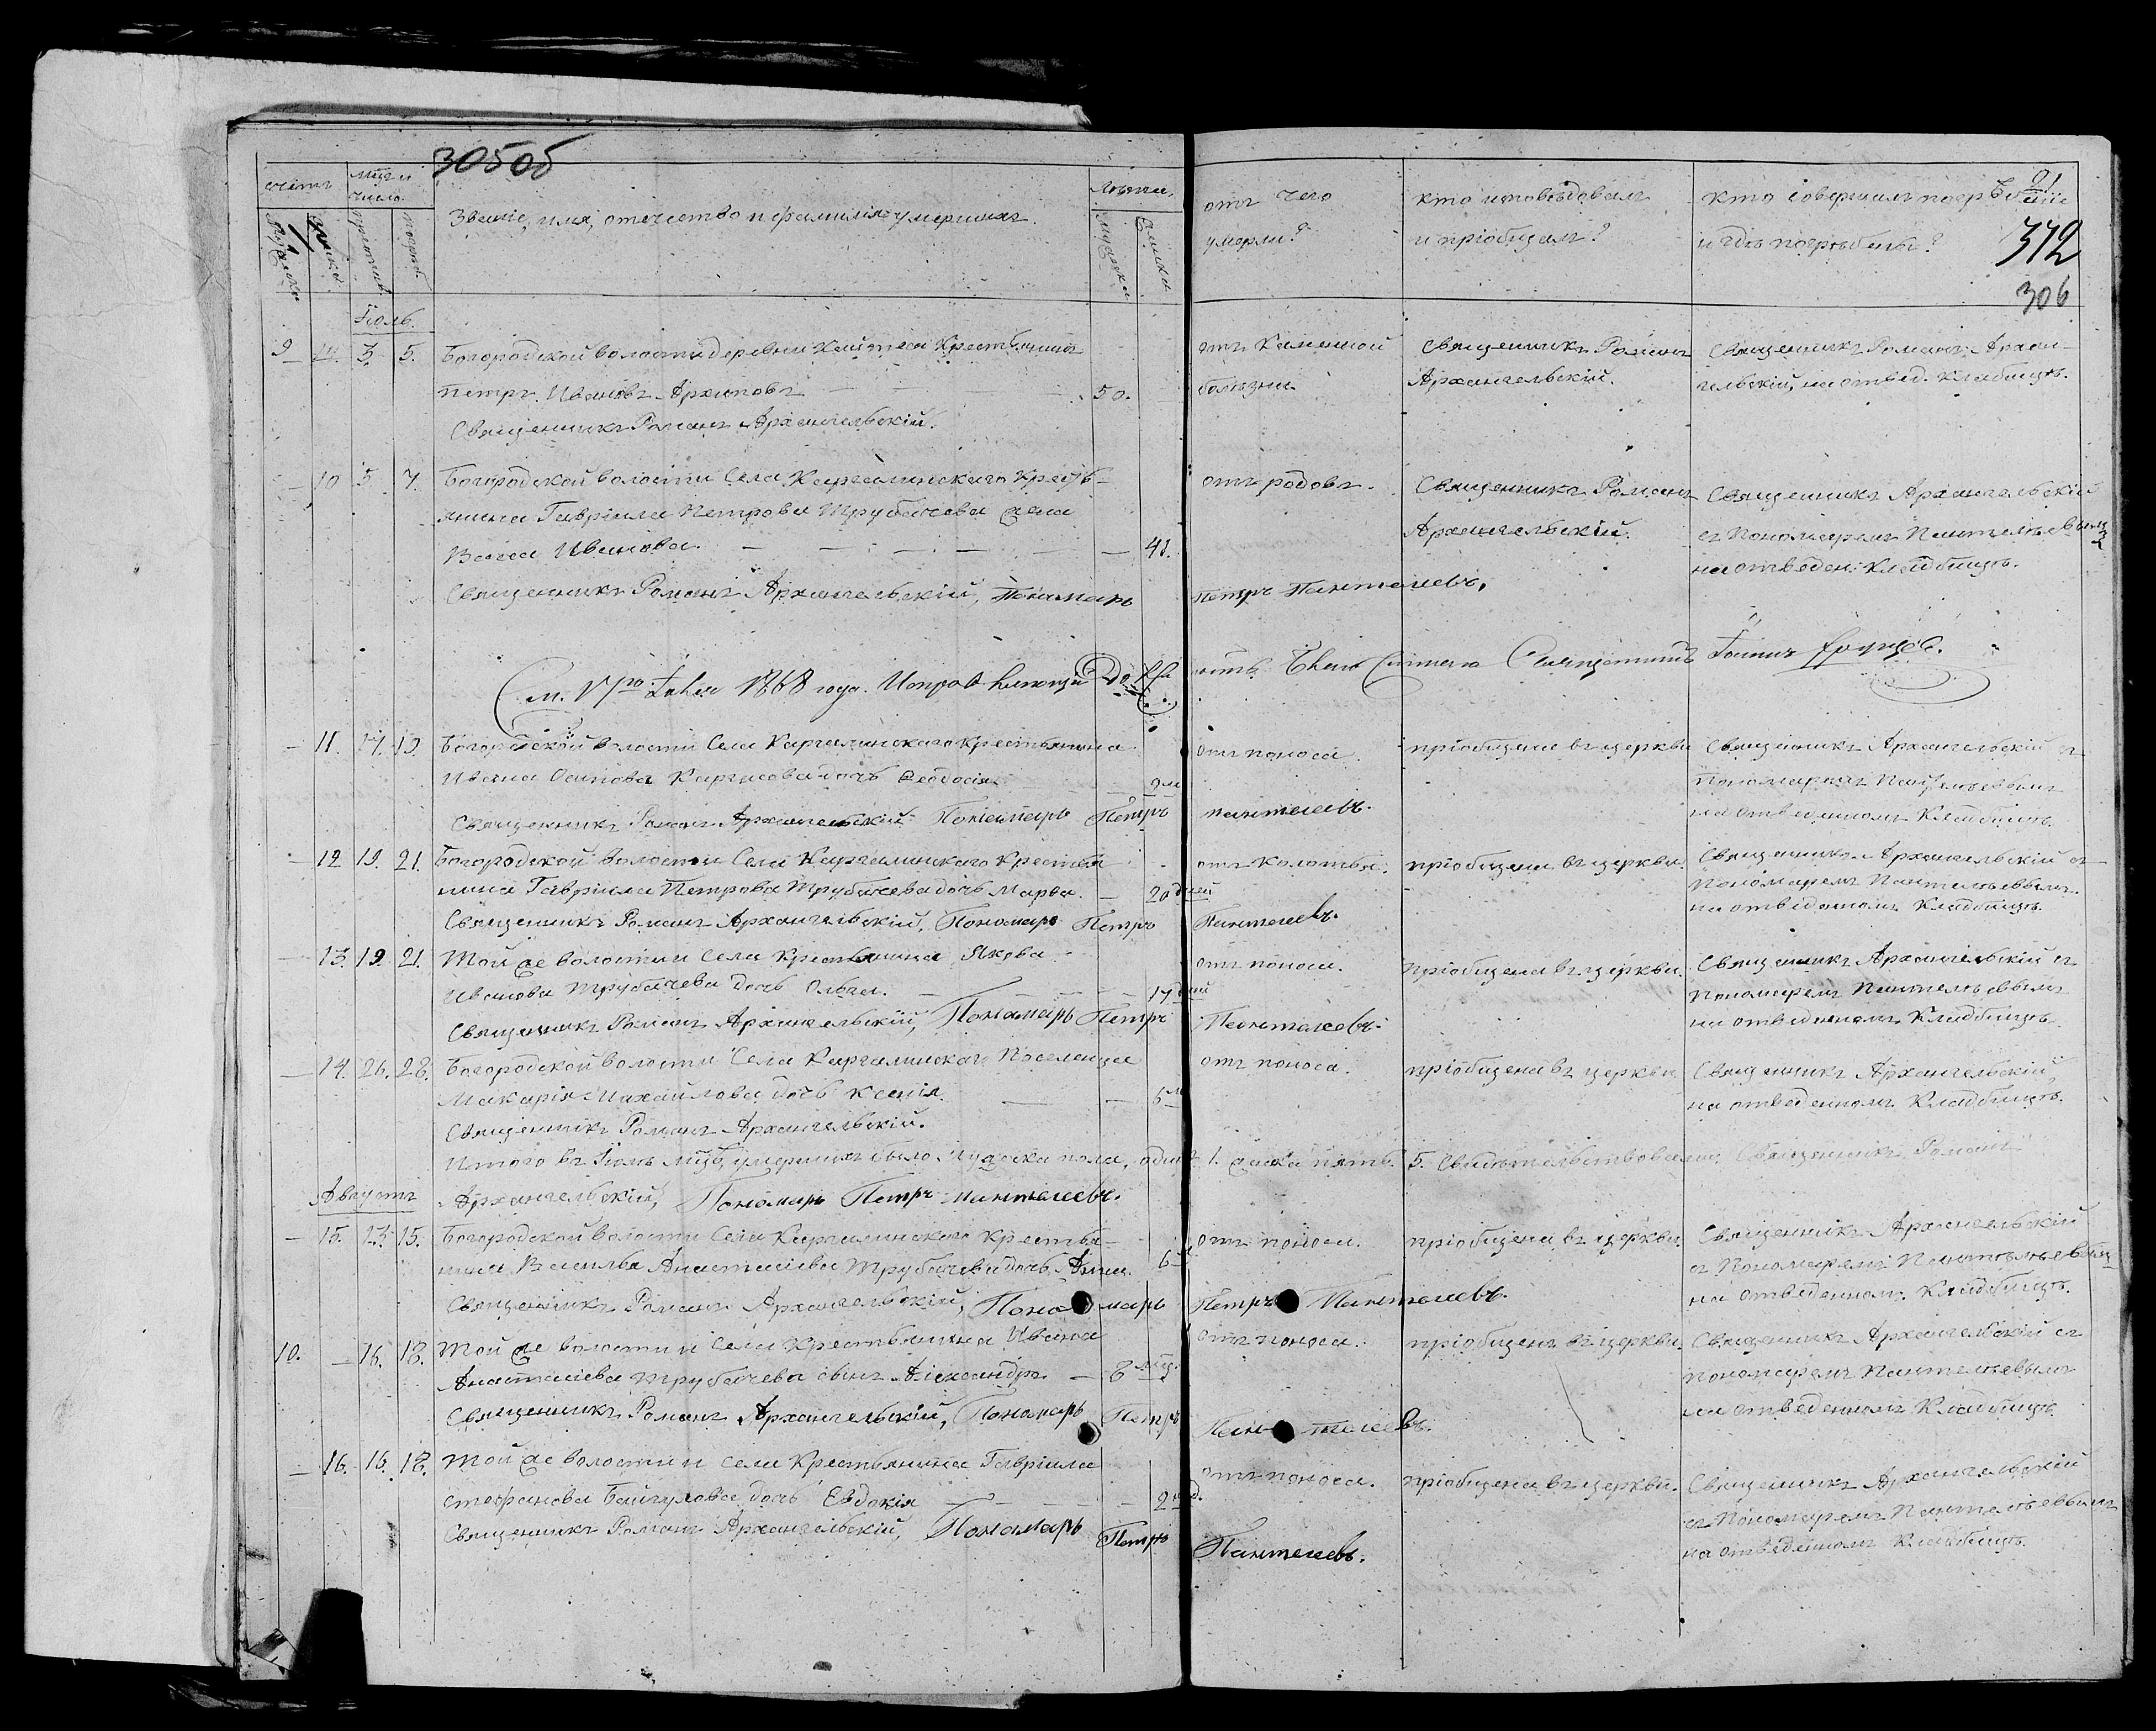 305об
91
372
306
счетъ
Мцъ и число.
Звание, имя, отечество и фамилія умершихъ.
Лѣта.
отъ чего умерли?
кто исповѣдовалъ и пріобщалъ?
кто совершалъ погребеніе и гдѣ погребены?
Іюль.
9 3. 5. Богородской волости деревни крестьянинъ отъ каменной Священникъ Романъ Священникъ Романъ Архан-
Петръ Ивановъ Архиповъ 50. болѣзни. Архангельскій. гельскій, на отвед. кладбищѣ.
Священникъ Романъ Архангельскій.
– 10 5. 7. Богородской волости Села Каргалинскаго крестъ- отъ родовъ. Священникъ Романъ Священникъ Архангельскій
янина Гавріила Петрова Трубачева жена Архангельскій. съ Пономаремъ Пантелѣевымъ
Иванова. – – – – – 41. на отведен: кладбищѣ.
Священникъ Романъ Архангельскій, Пономарь Петръ Пантелеевъ.
1868 года. Священникъ
– 11. 17. 19. Богородской волости Села Каргалинскаго крестьянина отъ поноса. пріобщена въ церкви Священникъ Архангельскій съ
Ивана Осипова дочь Ѳеодосія 9 м Пономаремъ Пантелѣевымъ
Священникъ Романъ Архангельскій Пономарь Петръ Пантелеевъ. на отведенномъ кладбищѣ.
– 12 19. 21. Богородской волости Села Каргалинскаго крестья отъ колотья. пріобщена въ церкви. Священникъ Архангельскій съ
нина Гавріила Петрова Трубачева дочь Марѳа. – 20 дней Пономаремъ Пантелѣевымъ.
Священникъ Романъ Архангельскій, Пономарь Петръ Пантелеевъ. на отведенномъ кладбищѣ.
– 13. 19. 21. Той же волости и села крестьянина Якова отъ поноса. пріобщена въ церкви. Священникъ Архангельскій съ
Иванова Трубачева дочь Ольга. – – – – 17 дней Пономаремъ Пантелѣевымъ
Священникъ Романъ Архангельскій, Пономарь Петръ Пантелеевъ. на отведенномъ кладбищѣ
– 14. 26. 28. Богородской волости Села Каргалинскаго Поселенца отъ поноса. пріобщена въ церкви Священникъ Архангельскій,
Макарія Михайлова дочь Ксенія. – – 6 м на отведенномъ кладбищѣ.
Священникъ Романъ Архангельскій.
Итого въ Іюлѣ мцѣ умершихъ было мужеска пола, одинъ 1. женска пять 5. Свидѣтельствовали: Священникъ Романъ
Архангельскій, Пономарь Петръ Пантелеевъ.
Августъ
– 15. 13. 15. Богородской волости Села Каргалинскаго крестья- отъ поноса. пріобщена въ церкви. Священникъ Архангельскій
нина Василья Анастасіева Трубачева дочь Анна. 6 съ Пономаремъ Пантелѣевымъ
Священникъ Романъ Архангельскій, Пономарь Петръ Пантелеевъ. на отведенномъ кладбищѣ.
10. – 16. 18. Той же волости и села крестьянина Ивана отъ поноса. пріобщенъ въ церкви Священникъ Архангельскій съ
Анастасіева Трубачева сынъ Александръ. – 8 мц. пономаремъ Пантелѣевымъ
Священникъ Романъ Архангельскій, Пономарь Петръ Пантелеевъ. на отведенномъ кладбищѣ.
– 16. 16. 18. Той же волости и села крестьянина Гавріила отъ поноса. пріобщена въ церкви. Священникъ Архангельскій
Стефанова дочь Евдокія – – – – 2 съ Пономаремъ Пантелѣевымъ
Священникъ Романъ Архангельскій, Пономарь Петръ Пантелеевъ. на отведенномъ кладбищѣ.